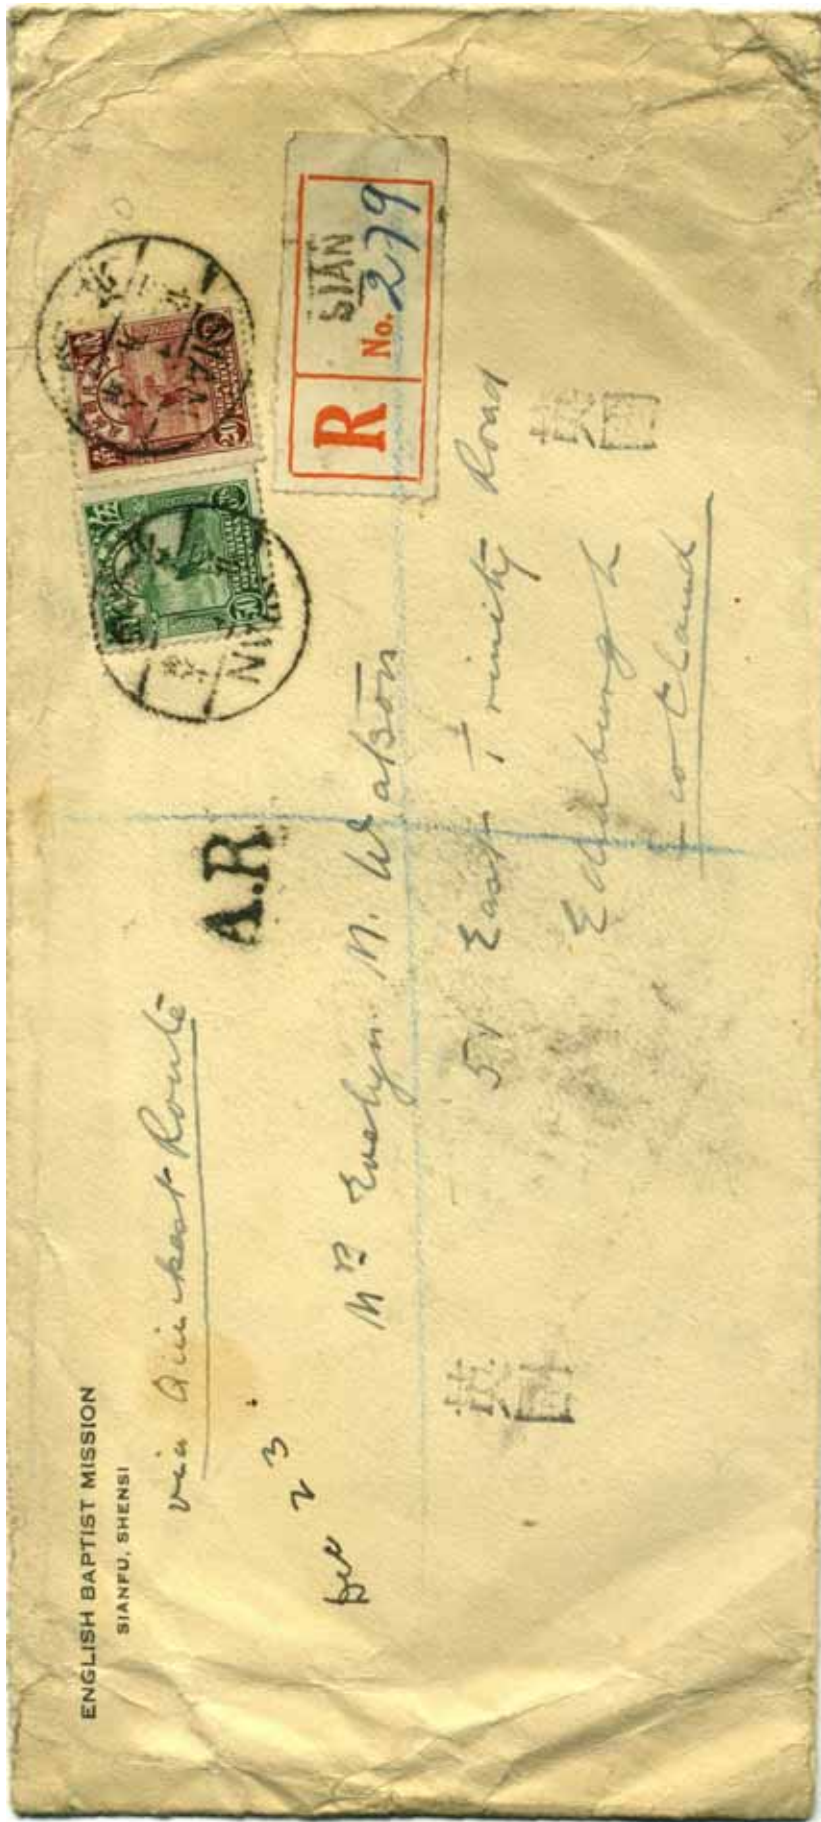 ENGLISH BAPTIST MISSION
SIANFU, SHENSI
via Quickest Route
A.R
R
SIAN
No. 279
23
Mrs Evelyn. N. Watson
East Trinity Road
Edinburgh
Scotland
SIAN
50
20